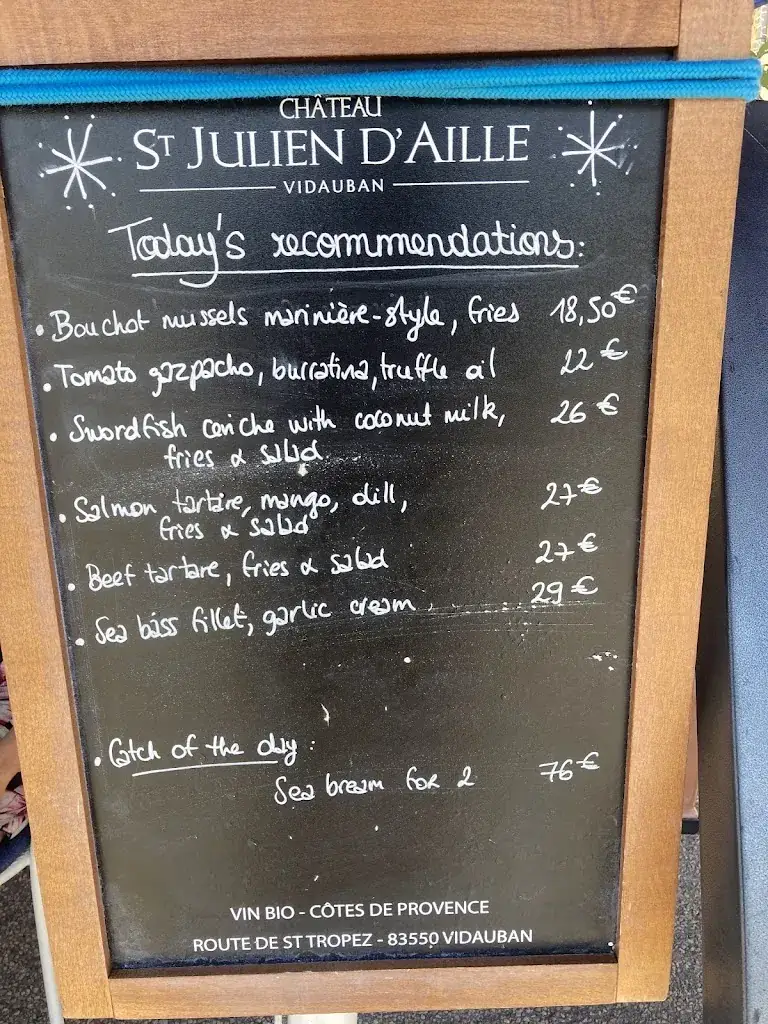 CHÂTEAU
ST JULIEN D'AILLE
VIDAUBAN
Today's recommendations:
• Bouchot mussels marinière-style, fries 18,50€
• Tomato gazpacho, burratina, truffle oil 22€
• Swordfish ceviche with coconut milk, 26€
fries & salad
• Salmon tartare, mango, dill, 27€
fries & salad
• Beef tartare, fries & salad 27€
• Sea bass fillet, garlic cream 29€
• Catch of the day:
Sea bream for 2 76€
VIN BIO - CÔTES DE PROVENCE
ROUTE DE ST TROPEZ - 83550 VIDAUBAN